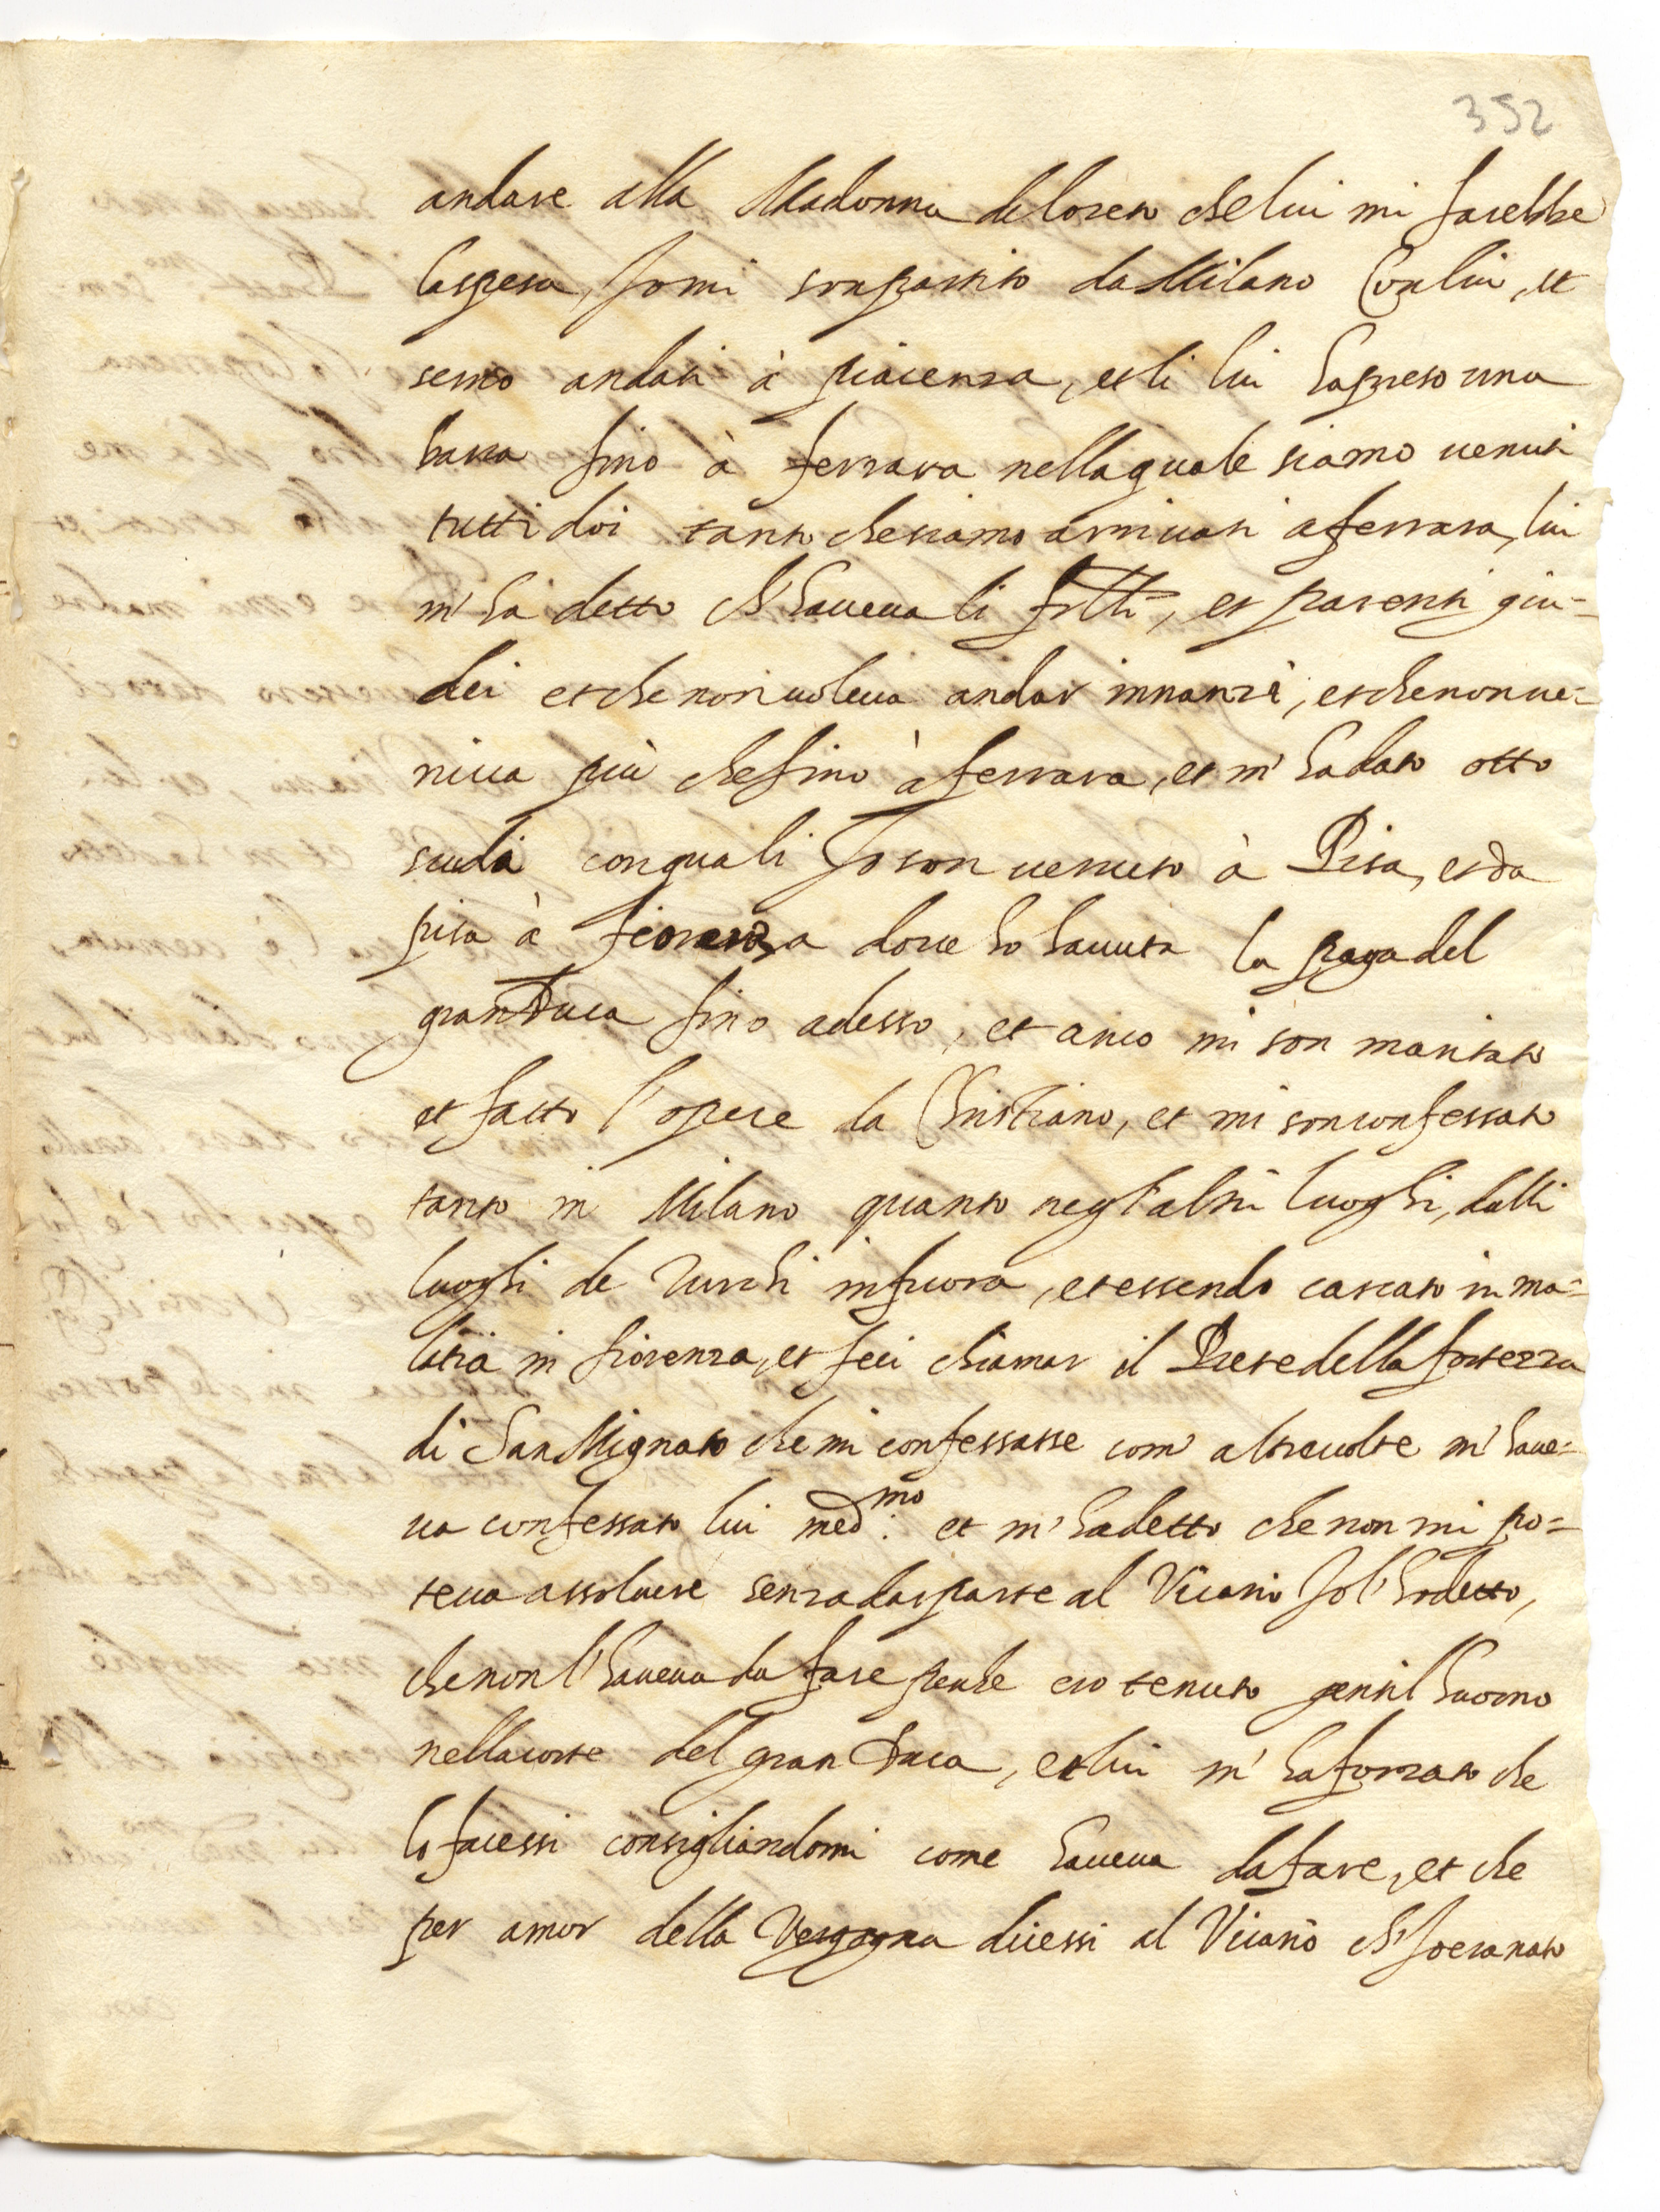 352
andare alla Madonna de loreto che lui mi farebbe
la spesa, Jo mi son partito da Milano Con lui, et
semo andati à piacenza, et li lui ha preso una
barca fino à ferrara nella quale siamo venuti
tutti doi tanto che siamo arrivati a ferrara, lui
m'ha detto ch'haveva li frlli, et parenti giu-
dei et che non voleva andar innanzi, et che non ve-
niva più che fino à ferrara, et m'ha dato otto
scudi con quali Jo son venuto à Pisa, et da
pisa à fiorenza dove ho havuta la paga del
gran Duca fino adesso, et anco mi son maritato
et fatto l'opere da Christiano, et mi son confessato
tanto in Milano quanto negl'altri luoghi, dalli
luoghi de Turchi infuora, et essendo cascato in ma-
latia in fiorenza, et feci chiamar il Prete della fortezza
di San Mignato che mi confessasse com' altre volte m'have-
va confessato lui med:mo et m'ha detto che non mi po-
teva assolvere senza dar parte al Vicario Jo l'ho detto,
che non l'haveva da fare perche ero tenuto gentil'huomo
nella corte del gran Duca, et lui m'ha forzato che
lo facessi consigliandomi come haveva da fare, et che
per amor della Vergogna dicessi al Vicario ch'Jo era nato